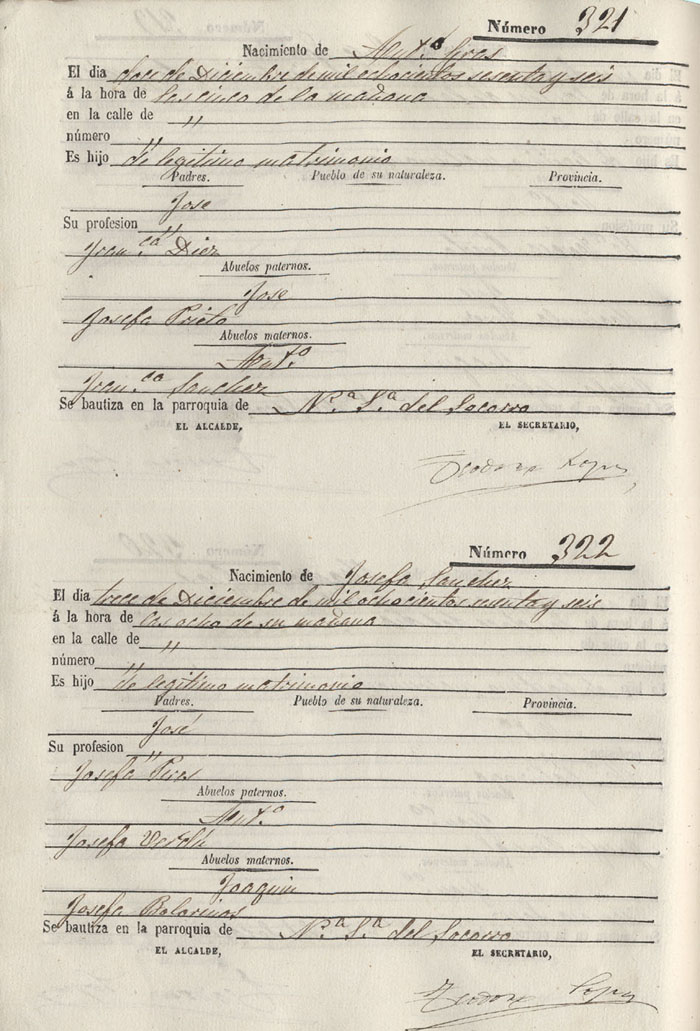 Número 321
Nacimiento de Ant.º Gras
El dia doce de Diciembre de mil ochocientos sesenta y seis
á la hora de las cinco de la mañana
en la calle de "
número "
Es hijo de legitimo matrimonio
Padres. Pueblo de su naturaleza. Provincia.
Jose
Su profesion "
Fran.ca Diez
Abuelos paternos.
Jose
Josefa Prieto
Abuelos maternos.
Ant.º
Fran.ca Sanchez
Se bautiza en la parroquia de N.ª S.ª del Socorro
EL ALCALDE, EL SECRETARIO,
Teodoro Lopez
Número 322
Nacimiento de Josefa Sanchez
El dia trece de Diciembre de mil ochocientos sesenta y seis
á la hora de las ocho de su mañana
en la calle de "
número "
Es hijo de legitimo matrimonio
Padres. Pueblo de su naturaleza. Provincia.
José
Su profesion "
Josefa Peres
Abuelos paternos.
Ant.º
Josefa Verdú
Abuelos maternos.
Joaquin
Josefa Bolarinos
Se bautiza en la parroquia de N.ª S.ª del Socorro
EL ALCALDE, EL SECRETARIO,
Teodoro Lopez